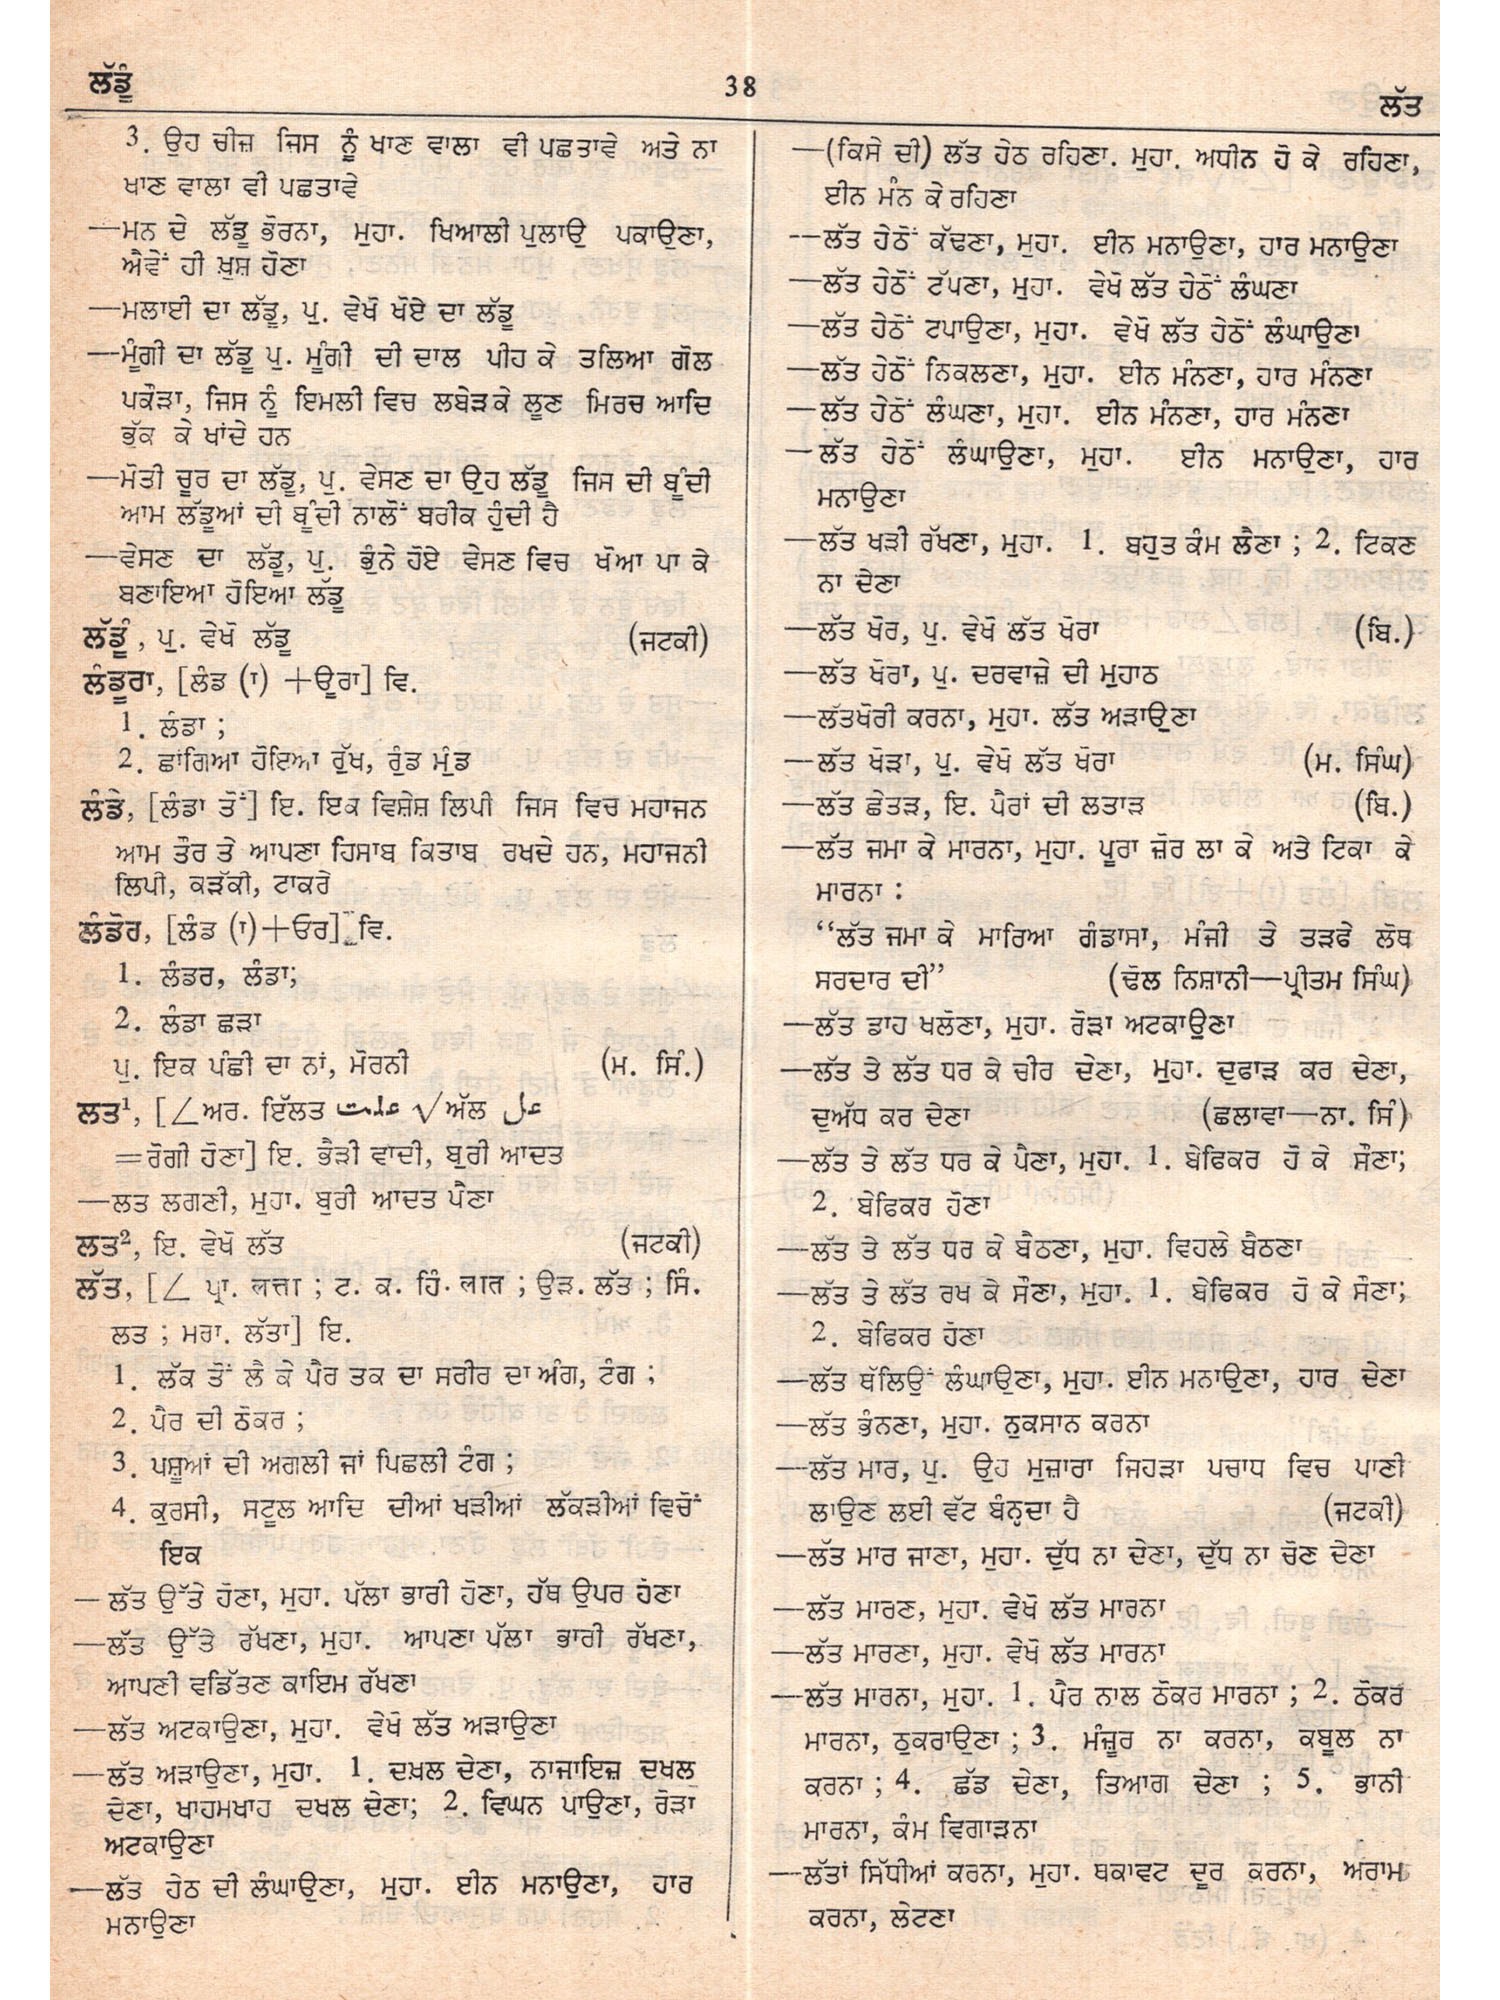 ਲੱਡੂੰ
38
ਲੱਤ
3. ਉਹ ਚੀਜ਼ ਜਿਸ ਨੂੰ ਖਾਣ ਵਾਲਾ ਵੀ ਪਛਤਾਵੇ ਅਤੇ ਨਾ
ਖਾਣ ਵਾਲਾ ਵੀ ਪਛਤਾਵੇ
—ਮਨ ਦੇ ਲੱਡੂ ਭੋਰਨਾ, ਮੁਹਾ. ਖਿਆਲੀ ਪੁਲਾਉ ਪਕਾਉਣਾ,
ਐਵੇਂ ਹੀ ਖ਼ੁਸ਼ ਹੋਣਾ
—ਮਲਾਈ ਦਾ ਲੱਡੂ, ਪੁ. ਵੇਖੋ ਖੋਏ ਦਾ ਲੱਡੂ
—ਮੂੰਗੀ ਦਾ ਲੱਡੂ ਪੁ. ਮੂੰਗੀ ਦੀ ਦਾਲ ਪੀਹ ਕੇ ਤਲਿਆ ਗੋਲ
ਪਕੌੜਾ, ਜਿਸ ਨੂੰ ਇਮਲੀ ਵਿਚ ਲਬੇੜਕੇ ਲੂਣ ਮਿਰਚ ਆਦਿ
ਭੁੱਕ ਕੇ ਖਾਂਦੇ ਹਨ
—ਮੋਤੀ ਚੂਰ ਦਾ ਲੱਡੂ, ਪੁ. ਵੇਸਣ ਦਾ ਉਹ ਲੱਡੂ ਜਿਸ ਦੀ ਬੂੰਦੀ
ਆਮ ਲੱਡੂਆਂ ਦੀ ਬੂੰਦੀ ਨਾਲੋਂ ਬਰੀਕ ਹੁੰਦੀ ਹੈ
—ਵੇਸਣ ਦਾ ਲੱਡੂ, ਪੁ. ਭੁੰਨੇ ਹੋਏ ਵੇਸਣ ਵਿਚ ਖੋਆ ਪਾ ਕੇ
ਬਣਾਇਆ ਹੋਇਆ ਲੱਡੂ
ਲੱਡੂੰ, ਪੁ. ਵੇਖੋ ਲੱਡੂ (ਜਟਕੀ)
ਲੰਡੂਰਾ, [ਲੰਡ (ਾ) +ਊਰਾ] ਵਿ.
1. ਲੰਡਾ ;
2. ਛਾਂਗਿਆ ਹੋਇਆ ਰੁੱਖ, ਰੁੰਡ ਮੁੰਡ
ਲੰਡੇ, [ਲੰਡਾ ਤੋਂ] ਇ. ਇਕ ਵਿਸ਼ੇਸ਼ ਲਿਪੀ ਜਿਸ ਵਿਚ ਮਹਾਜਨ
ਆਮ ਤੌਰ ਤੇ ਆਪਣਾ ਹਿਸਾਬ ਕਿਤਾਬ ਰਖਦੇ ਹਨ, ਮਹਾਜਨੀ
ਲਿਪੀ, ਕੜੱਕੀ, ਟਾਕਰੇ
ਲੰਡੋਰ, [ਲੰਡ (ਾ)+ਓਰ] ਵਿ.
1. ਲੰਡਰ, ਲੰਡਾ;
2. ਲੰਡਾ ਛੜਾ
ਪੁ. ਇਕ ਪੰਛੀ ਦਾ ਨਾਂ, ਮੋਰਨੀ (ਮ. ਸਿੰ.)
ਲਤ¹, [∠ਅਰ. ਇੱਲਤ علت √ਅੱਲ عل
=ਰੋਗੀ ਹੋਣਾ] ਇ. ਭੈੜੀ ਵਾਦੀ, ਬੁਰੀ ਆਦਤ
—ਲਤ ਲਗਣੀ, ਮੁਹਾ. ਬੁਰੀ ਆਦਤ ਪੈਣਾ
ਲਤ², ਇ. ਵੇਖੋ ਲੱਤ (ਜਟਕੀ)
ਲੱਤ, [∠ ਪ੍ਰਾ. लत्ता ; ਟ. ਕ. ਹਿੰ. लात ; ਉੜ. ਲੱਤ ; ਸਿੰ.
ਲਤ ; ਮਰਾ. ਲੱਤਾ] ਇ.
1. ਲੱਕ ਤੋਂ ਲੈ ਕੇ ਪੈਰ ਤਕ ਦਾ ਸਰੀਰ ਦਾ ਅੰਗ, ਟੰਗ ;
2. ਪੈਰ ਦੀ ਠੋਕਰ ;
3. ਪਸ਼ੂਆਂ ਦੀ ਅਗਲੀ ਜਾਂ ਪਿਛਲੀ ਟੰਗ ;
4. ਕੁਰਸੀ, ਸਟੂਲ ਆਦਿ ਦੀਆਂ ਖੜੀਆਂ ਲੱਕੜੀਆਂ ਵਿਚੋਂ
ਇਕ
—ਲੱਤ ਉੱਤੇ ਹੋਣਾ, ਮੁਹਾ. ਪੱਲਾ ਭਾਰੀ ਹੋਣਾ, ਹੱਥ ਉਪਰ ਹੋਣਾ
—ਲੱਤ ਉੱਤੇ ਰੱਖਣਾ, ਮੁਹਾ. ਆਪਣਾ ਪੱਲਾ ਭਾਰੀ ਰੱਖਣਾ,
ਆਪਣੀ ਵਡਿੱਤਣ ਕਾਇਮ ਰੱਖਣਾ
—ਲੱਤ ਅਟਕਾਉਣਾ, ਮੁਹਾ. ਵੇਖੋ ਲੱਤ ਅੜਾਉਣਾ
—ਲੱਤ ਅੜਾਉਣਾ, ਮੁਹਾ. 1. ਦਖ਼ਲ ਦੇਣਾ, ਨਾਜਾਇਜ਼ ਦਖਲ
ਦੇਣਾ, ਖਾਹਮਖਾਹ ਦਖਲ ਦੇਣਾ; 2. ਵਿਘਨ ਪਾਉਣਾ, ਰੋੜਾ
ਅਟਕਾਉਣਾ
—ਲੱਤ ਹੇਠ ਦੀ ਲੰਘਾਉਣਾ, ਮੁਹਾ. ਈਨ ਮਨਾਉਣਾ, ਹਾਰ
ਮਨਾਉਣਾ
—(ਕਿਸੇ ਦੀ) ਲੱਤ ਹੇਠ ਰਹਿਣਾ. ਮੁਹਾ. ਅਧੀਨ ਹੋ ਕੇ ਰਹਿਣਾ,
ਈਨ ਮੰਨ ਕੇ ਰਹਿਣਾ
—ਲੱਤ ਹੇਠੋਂ ਕੱਢਣਾ, ਮੁਹਾ. ਈਨ ਮਨਾਉਣਾ, ਹਾਰ ਮਨਾਉਣਾ
—ਲੱਤ ਹੇਠੋਂ ਟੱਪਣਾ, ਮੁਹਾ. ਵੇਖੋ ਲੱਤ ਹੇਠੋਂ ਲੰਘਣਾ
—ਲੱਤ ਹੇਠੋਂ ਟਪਾਉਣਾ, ਮੁਹਾ. ਵੇਖੋ ਲੱਤ ਹੇਠੋਂ ਲੰਘਾਉਣਾ
—ਲੱਤ ਹੇਠੋਂ ਨਿਕਲਣਾ, ਮੁਹਾ. ਈਨ ਮੰਨਣਾ, ਹਾਰ ਮੰਨਣਾ
—ਲੱਤ ਹੇਠੋਂ ਲੰਘਣਾ, ਮੁਹਾ. ਈਨ ਮੰਨਣਾ, ਹਾਰ ਮੰਨਣਾ
—ਲੱਤ ਹੇਠੋਂ ਲੰਘਾਉਣਾ, ਮੁਹਾ. ਈਨ ਮਨਾਉਣਾ, ਹਾਰ
ਮਨਾਉਣਾ
—ਲੱਤ ਖੜੀ ਰੱਖਣਾ, ਮੁਹਾ. 1. ਬਹੁਤ ਕੰਮ ਲੈਣਾ ; 2. ਟਿਕਣ
ਨਾ ਦੇਣਾ
—ਲੱਤ ਖੋਰ, ਪੁ. ਵੇਖੋ ਲੱਤ ਖੋਰਾ (ਬਿ.)
—ਲੱਤ ਖੋਰਾ, ਪੁ. ਦਰਵਾਜ਼ੇ ਦੀ ਮੁਹਾਠ
—ਲੱਤਖੋਰੀ ਕਰਨਾ, ਮੁਹਾ. ਲੱਤ ਅੜਾਉਣਾ
—ਲੱਤ ਖੋੜਾ, ਪੁ. ਵੇਖੋ ਲੱਤ ਖੋਰਾ (ਮ. ਸਿੰਘ)
—ਲੱਤ ਛੇਤੜ, ਇ. ਪੈਰਾਂ ਦੀ ਲਤਾੜ (ਬਿ.)
—ਲੱਤ ਜਮਾ ਕੇ ਮਾਰਨਾ, ਮੁਹਾ. ਪੂਰਾ ਜ਼ੋਰ ਲਾ ਕੇ ਅਤੇ ਟਿਕਾ ਕੇ
ਮਾਰਨਾ :
“ਲੱਤ ਜਮਾ ਕੇ ਮਾਰਿਆ ਗੰਡਾਸਾ, ਮੰਜੀ ਤੇ ਤੜਫੇ ਲੋਥ
ਸਰਦਾਰ ਦੀ” (ਢੋਲ ਨਿਸ਼ਾਨੀ—ਪ੍ਰੀਤਮ ਸਿੰਘ)
—ਲੱਤ ਡਾਹ ਖਲੋਣਾ, ਮੁਹਾ. ਰੋੜਾ ਅਟਕਾਉਣਾ
—ਲੱਤ ਤੇ ਲੱਤ ਧਰ ਕੇ ਚੀਰ ਦੇਣਾ, ਮੁਹਾ. ਦੁਫਾੜ ਕਰ ਦੇਣਾ,
ਦੁਅੱਧ ਕਰ ਦੇਣਾ (ਛਲਾਵਾ—ਨਾ. ਸਿੰ)
—ਲੱਤ ਤੇ ਲੱਤ ਧਰ ਕੇ ਪੈਣਾ, ਮੁਹਾ. 1. ਬੇਫਿਕਰ ਹੋ ਕੇ ਸੌਣਾ;
2. ਬੇਫਿਕਰ ਹੋਣਾ
—ਲੱਤ ਤੇ ਲੱਤ ਧਰ ਕੇ ਬੈਠਣਾ, ਮੁਹਾ. ਵਿਹਲੇ ਬੈਠਣਾ
—ਲੱਤ ਤੇ ਲੱਤ ਰਖ ਕੇ ਸੌਣਾ, ਮੁਹਾ. 1. ਬੇਫਿਕਰ ਹੋ ਕੇ ਸੌਣਾ;
2. ਬੇਫਿਕਰ ਹੋਣਾ
—ਲੱਤ ਥੱਲਿਉਂ ਲੰਘਾਉਣਾ, ਮੁਹਾ. ਈਨ ਮਨਾਉਣਾ, ਹਾਰ ਦੇਣਾ
—ਲੱਤ ਭੰਨਣਾ, ਮੁਹਾ. ਨੁਕਸਾਨ ਕਰਨਾ
—ਲੱਤ ਮਾਰ, ਪੁ. ਉਹ ਮੁਜ਼ਾਰਾ ਜਿਹੜਾ ਪਚਾਧ ਵਿਚ ਪਾਣੀ
ਲਾਉਣ ਲਈ ਵੱਟ ਬੰਨ੍ਹਦਾ ਹੈ (ਜਟਕੀ)
—ਲੱਤ ਮਾਰ ਜਾਣਾ, ਮੁਹਾ. ਦੁੱਧ ਨਾ ਦੇਣਾ, ਦੁੱਧ ਨਾ ਚੋਣ ਦੇਣਾ
—ਲੱਤ ਮਾਰਣ, ਮੁਹਾ. ਵੇਖੋ ਲੱਤ ਮਾਰਨਾ
—ਲੱਤ ਮਾਰਣਾ, ਮੁਹਾ. ਵੇਖੋ ਲੱਤ ਮਾਰਨਾ
—ਲੱਤ ਮਾਰਨਾ, ਮੁਹਾ. 1. ਪੈਰ ਨਾਲ ਠੋਕਰ ਮਾਰਨਾ ; 2. ਠੋਕਰ
ਮਾਰਨਾ, ਠੁਕਰਾਉਣਾ ; 3. ਮੰਜ਼ੂਰ ਨਾ ਕਰਨਾ, ਕਬੂਲ ਨਾ
ਕਰਨਾ ; 4. ਛੱਡ ਦੇਣਾ, ਤਿਆਗ ਦੇਣਾ ; 5. ਭਾਨੀ
ਮਾਰਨਾ, ਕੰਮ ਵਿਗਾੜਨਾ
—ਲੱਤਾਂ ਸਿੱਧੀਆਂ ਕਰਨਾ, ਮੁਹਾ. ਥਕਾਵਟ ਦੂਰ ਕਰਨਾ, ਅਰਾਮ
ਕਰਨਾ, ਲੇਟਣਾ